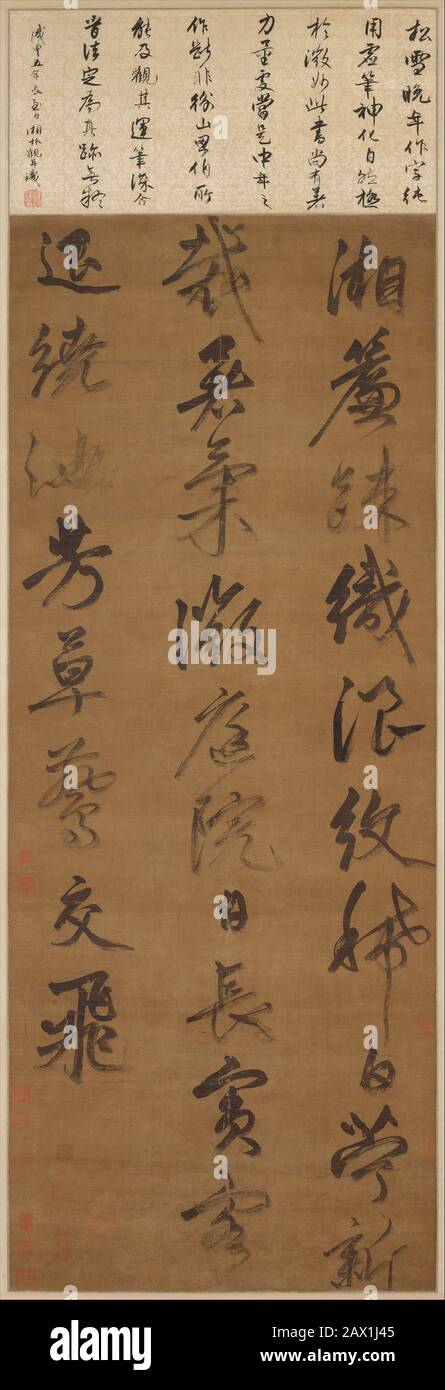 松雪晚年作字純
用虛筆神化自然極
於微妙此書尚有著
力重處當是中年之
作斷非山伯所
能及觀其運筆深合
晉法定為真跡無疑
五年長至日湘林觀并識
湘簾踈織浪紋稀白苧新
裁暑氣微庭院日長賓客
退繞池芳草鷰交飛
alamy
alamy
Image ID: 2AX1J45
www.alamy.com